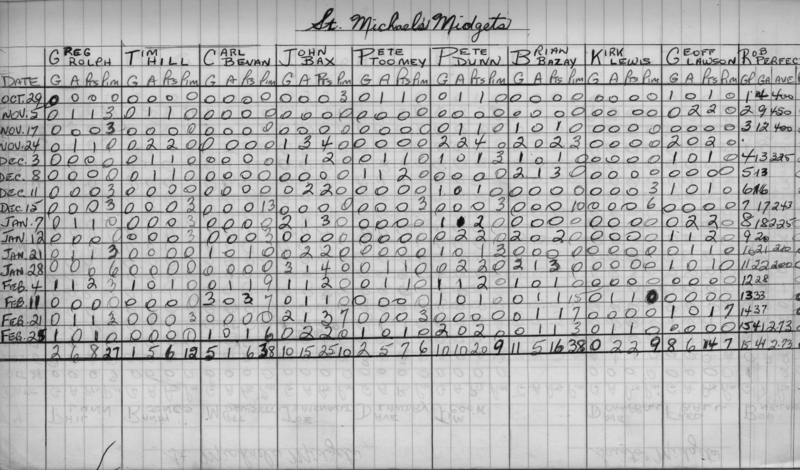 St. Michaels Midgets
GREG ROLPH TIM HILL CARL BEVAN JOHN BAX PETE TOOMEY PETE DUNN BRIAN BAZAY KIRK LEWIS GEOFF LAWSON ROB PERFECT
DATE G A Pts Pim G A Pts Pim G A Pts Pim G A Pts Pim G A Pts Pim G A Pts Pim G A Pts Pim G A Pts Pim G A Pts Pim GP GA AVE
OCT.29 0 0 0 0 0 0 0 0 0 0 0 0 0 0 0 3 0 1 1 0 0 1 1 0 0 0 0 0 0 0 0 0 1 0 1 0 1 4 400
NOV.5 0 1 1 3 0 1 1 0 0 0 0 0 0 0 0 0 0 0 0 0 0 0 0 0 0 0 0 0 0 0 0 0 0 2 2 0 2 9 450
NOV.17 0 0 0 3 0 0 0 0 0 0 0 0 0 0 0 0 0 0 0 0 0 1 1 0 1 0 1 0 0 0 0 0 0 0 0 0 3 12 400
NOV.24 0 1 1 0 0 2 2 0 0 0 0 0 1 3 4 0 0 0 0 0 2 2 4 0 2 0 2 3 0 0 0 0 2 0 2 0
DEC.3 0 0 0 0 0 1 1 0 0 0 0 0 1 1 2 0 0 1 1 0 1 0 1 3 1 0 1 0 0 0 0 0 0 1 1 0 4 13 325
DEC.8 0 0 0 0 0 1 1 0 0 0 0 0 0 0 0 0 1 1 2 0 0 0 0 0 2 1 3 0 0 0 0 0 0 0 0 0 5 13
DEC.11 0 0 0 3 0 0 0 0 0 0 0 0 0 2 2 0 0 0 0 0 1 0 1 0 0 0 0 0 0 0 0 3 1 0 1 0 6 16
DEC.15 0 0 0 3 0 0 0 3 0 0 0 13 0 0 0 0 0 0 0 3 0 0 0 3 0 0 0 10 0 0 0 6 0 0 0 0 7 17 243
JAN.7 0 1 1 0 0 0 0 3 0 0 0 0 2 1 3 0 0 0 0 0 1 1 2 0 0 0 0 0 0 0 0 0 0 2 2 0 8 18 225
JAN.12 0 0 0 0 0 0 0 3 0 0 0 3 0 0 0 0 0 0 0 0 0 2 2 0 2 0 2 0 0 0 0 0 1 1 2 0 9 20
JAN.21 0 1 1 3 0 0 0 0 1 0 1 0 0 2 2 0 0 0 0 0 1 0 1 3 0 0 0 0 0 0 0 0 0 1 1 0 10 21 210
JAN.28 0 0 0 6 0 0 0 0 0 0 0 0 3 1 4 0 0 1 1 0 0 2 2 0 2 1 3 0 0 0 0 0 1 0 1 0 11 22 200
FEB.4 1 1 2 3 1 0 1 0 0 1 1 9 1 1 2 0 0 1 1 0 1 1 2 0 1 0 1 0 0 0 0 0 0 0 0 0 12 28
FEB.11 0 0 0 0 0 0 0 0 3 0 3 7 0 1 1 0 0 0 0 0 1 0 1 0 0 1 1 15 0 1 1 0 0 0 0 0 13 33
FEB.21 0 1 1 0 0 0 0 3 0 0 0 0 2 1 3 7 0 0 0 3 0 0 0 0 0 1 1 7 0 0 0 0 1 0 1 7 14 37
FEB.25 1 0 1 0 0 0 0 0 1 0 1 6 0 2 2 0 1 0 1 0 2 0 2 0 0 1 1 3 0 1 1 0 0 0 0 0 15 41 2.73
2 6 8 27 1 5 6 12 5 1 6 38 10 15 25 10 2 5 7 6 10 10 20 9 11 5 16 38 0 2 2 9 8 6 14 7 15 41 2.73